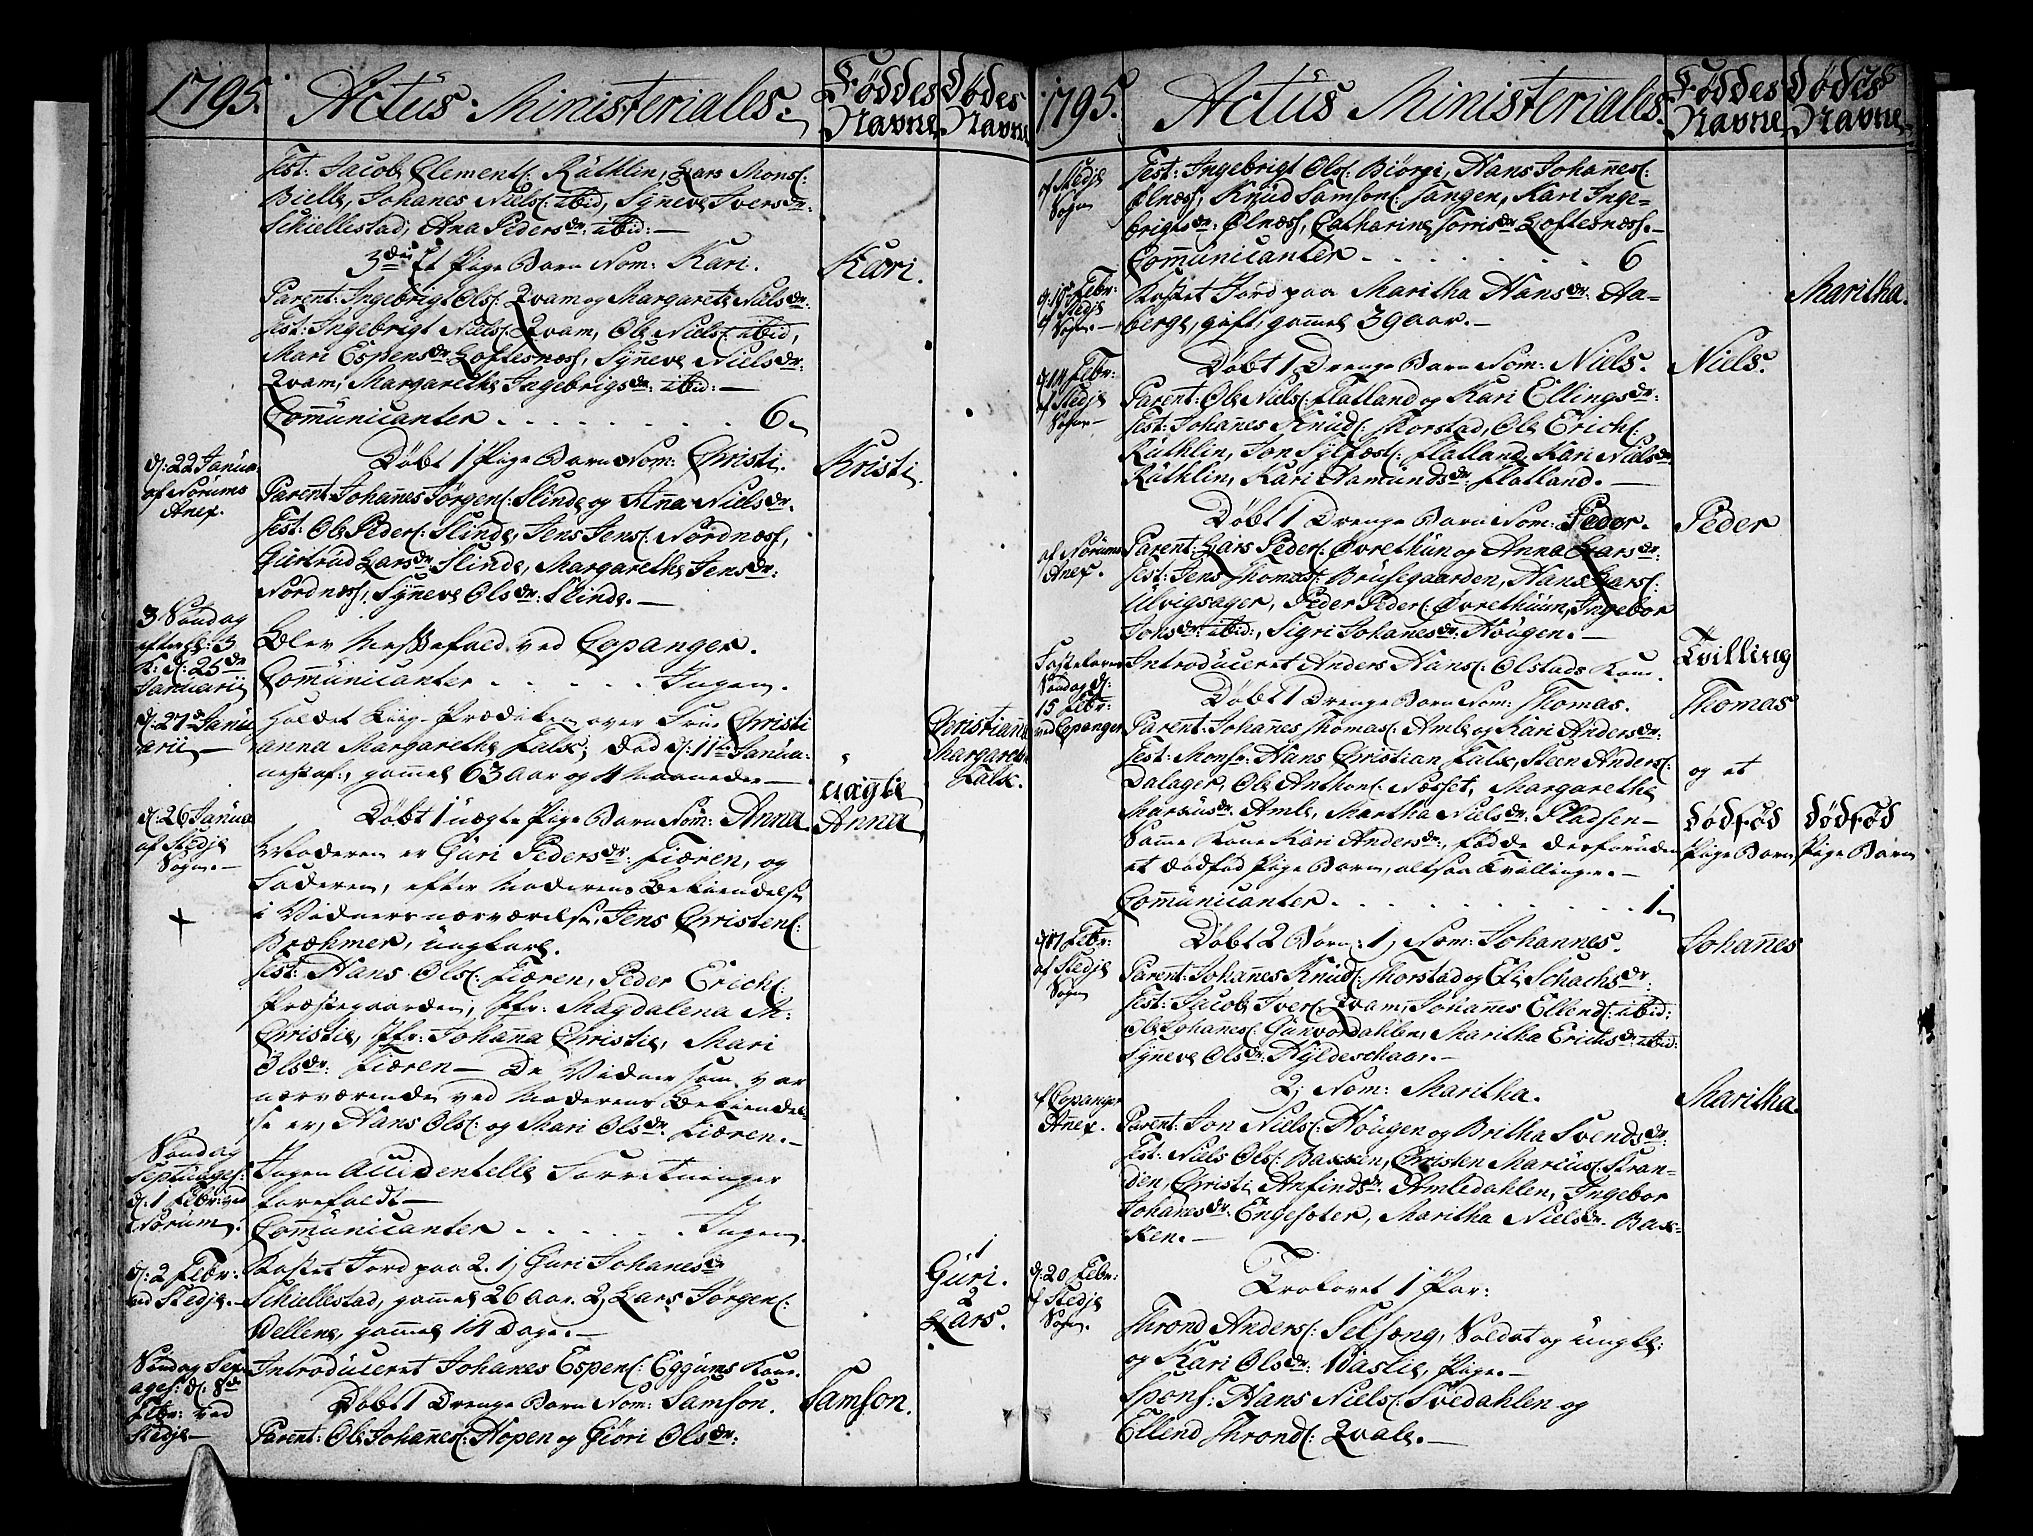 1795. Actus Ministeriales. Føddes Navne Dødes Navne
Test: Jacob Clements: Rüthlin, Lars Mons:
Bielle, Johanes Niels: ibid, Syneve Ivers dr:
Schiellestad, Ana Peders dr: ibid:
3die Et Pige Barn Nom: Kari. Kari.
Parent: Ingebrigt Ols: Qvam og Margarete Niels dr
Test: Ingebrigt Niels: Qvam, Ole Niels: ibid,
Mari Espens dr Loftesnæss, Syneve Niels dr:
Qvam, Margarethe Ingebrigs dr: ibid:
Com̄unicanter . . . . . . . . 6
d: 22 Janua: af Norums Anex.
Døbt 1 Pige Barn Nom: Christi. Kristi
Parent: Johan̄es Jørgens: Slinde og Anna Niels dr.
Test: Ole Peders: Slinde, Jens Jens: Nordnæss,
Giertrud Lars dr: Slinde, Margarethe Jens dr:
Nordnæss, Syneve Ols dr: Slinde.
3 Søndag efter H: 3 K: d: 25de Januarii
Blev Messefald ved Copanger.
Com̄unicanter . . . . . Ingen.
d: 27de Janu arii
Holdet Liig-Prædiken over Frue Christi
anna Margarethe Falk, død d: 11te Janua:
næstaf:, gam̄el 63 Aar og 4 Maaneder
Christiana Margareta Falk.
d: 26 Janua af Stedje Sogn.
Døbt 1 uægte Pige Barn Nom: Anna. uægte Anna
Moderen er Guri Peders dr: Fiæren, og
Faderen, efter Moderens Bekiendelse
i Vidners nærværelse, Jens Christens:
Bræhmer, ungkarl.
Test: Hans Ols: Fiæren, Peder Erichs:
Præstegaarden, Jfr: Magdalena M:
Christie, Jfr: Johan̄a Christie, Mari
Ols dr: Fiæren – De Vidner som var
nærværende ved Moderens Bekiendel
se er, Hans Ols: og Mari Ols dr: Fiæren.
Søndag Septuages: d: 1 Febr: ved Norum:
Ingen Accidentelle Forretninger
forefaldt
Com̄unicanter . . . . . Ingen.
d: 2 Febr: ved Stedje
Kastet Jord paa 2. 1, Guri Johanes dr
Schiellestad, gam̄el 26 Aar. 2, Lars Jørgens:
Vellene, gam̄el 14 Dage.
1 Guri. 2 Lars.
Søndag Sexagesi: d: 8de Febr: ved Stedje
Introduceret Johanes Espens: Eggums Kone.
Døbt 1 Drenge Barn Nom: Samson. Samson.
Parent: Ole Johanes: Hopen og Giøri Ols dr:
1795. Actus Ministeriales. Føddes Navne Dødes Navne
af Stedje Sogn
Test: Ingebrigt Ols: Biørgi, Hans Johan̄es:
Ølnæss, Knud Samsons: Tangen, Kari Inge-
brigts dr: Ølnæss, Catharine Torris dr Loftesnæss.
Com̄unicanter . . . . . . . 6
d: Febr: af Stedje Sogn
Kastet Jord paa Maritha Hans dr: Aa-
berge, gift, gam̄el 39 aar. Maritha.
d: 14 Febr: af Stedje Sogn
Døbt 1 Drenge Barn Nom: Niels. Niels.
Parent: Ole Niels: Flatland og Kari Ellings dr:
Test: Johan̄es Knuds: Thorstad, Ole Erichs:
Rüthlin, Jon Sylfæs: Flatland, Kari Niels dr
Rüthlin, Kari Aamunds dr: Flatland.
Døbt 1 Drenge Barn Nom: Peder. Peder
af Norums Anex.
Parent: Lars Peders: Øvrethun og Anna Lars dr:
Test: Jens Thomas: Brusegaarden, Hans Lars:
Ulvigsager, Peder Peders: Øvrethuun, Ingebor
Jons dr: ibid:, Sigri Johanes dr: Hougen.
Fastelavns Søndag d: 15 Febr: ved Copanger
Introduceret Anders Hans: Olstads Kone.
Døbt 1 Drenge Barn Nom: Thomas. Tvilling Thomas
Parent: Johan̄es Thomas: Amle og Kari Anders dr:
Test: Monsr. Hans Christian Falk, Steen Anders:
Dalager, Ole Anthons: Næsset, Margarethe
Marcus dr: Amle, Martha Niels dr: Pladsen
Samme Kone Kari Anders dr:, fødde desforuden
et dødfød Pige Barn, altsaa Tvillinger.
og et dødfød Pige Barn dødfød Pige Barn
Com̄unicanter . . . . . . . . . 1
d: 17 Febr: af Stedje Sogn
Døbt 2 Børn: 1, Nom: Johannes. Johan̄es
Parent: Johan̄es Knuds: Thorstad og Eli Schachs dr:
Test: Jacob Ivers: Qvam, Johan̄es Ellends: ibid:
Ole Johanes: Gunvordahlen, Maritha Erichs dr: ibid:
Syneve Ols dr: Hyldeschaar.
2, Nom: Maritha. Maritha.
af Copanger Anex.
Parent: Jon Niels: Hougen og Britha Svends dr:
Test: Niels Ols: Baxken, Christen Marcus: Stran-
den, Christi Anfinds dr: Amledahlen, Ingebor
Johanes dr: Engesæter, Maritha Niels dr: Bax-
ken.
d: 20 Febr: af Stedje Sogn.
Trolovet 1 Par:
Thrond Anders: Selseng, Soldat og ungk:
og Kari Ols dr: Baslie, Pige.
Spons: Hans Niels: Svedahlen og
Ellend Thronds: Qvale.